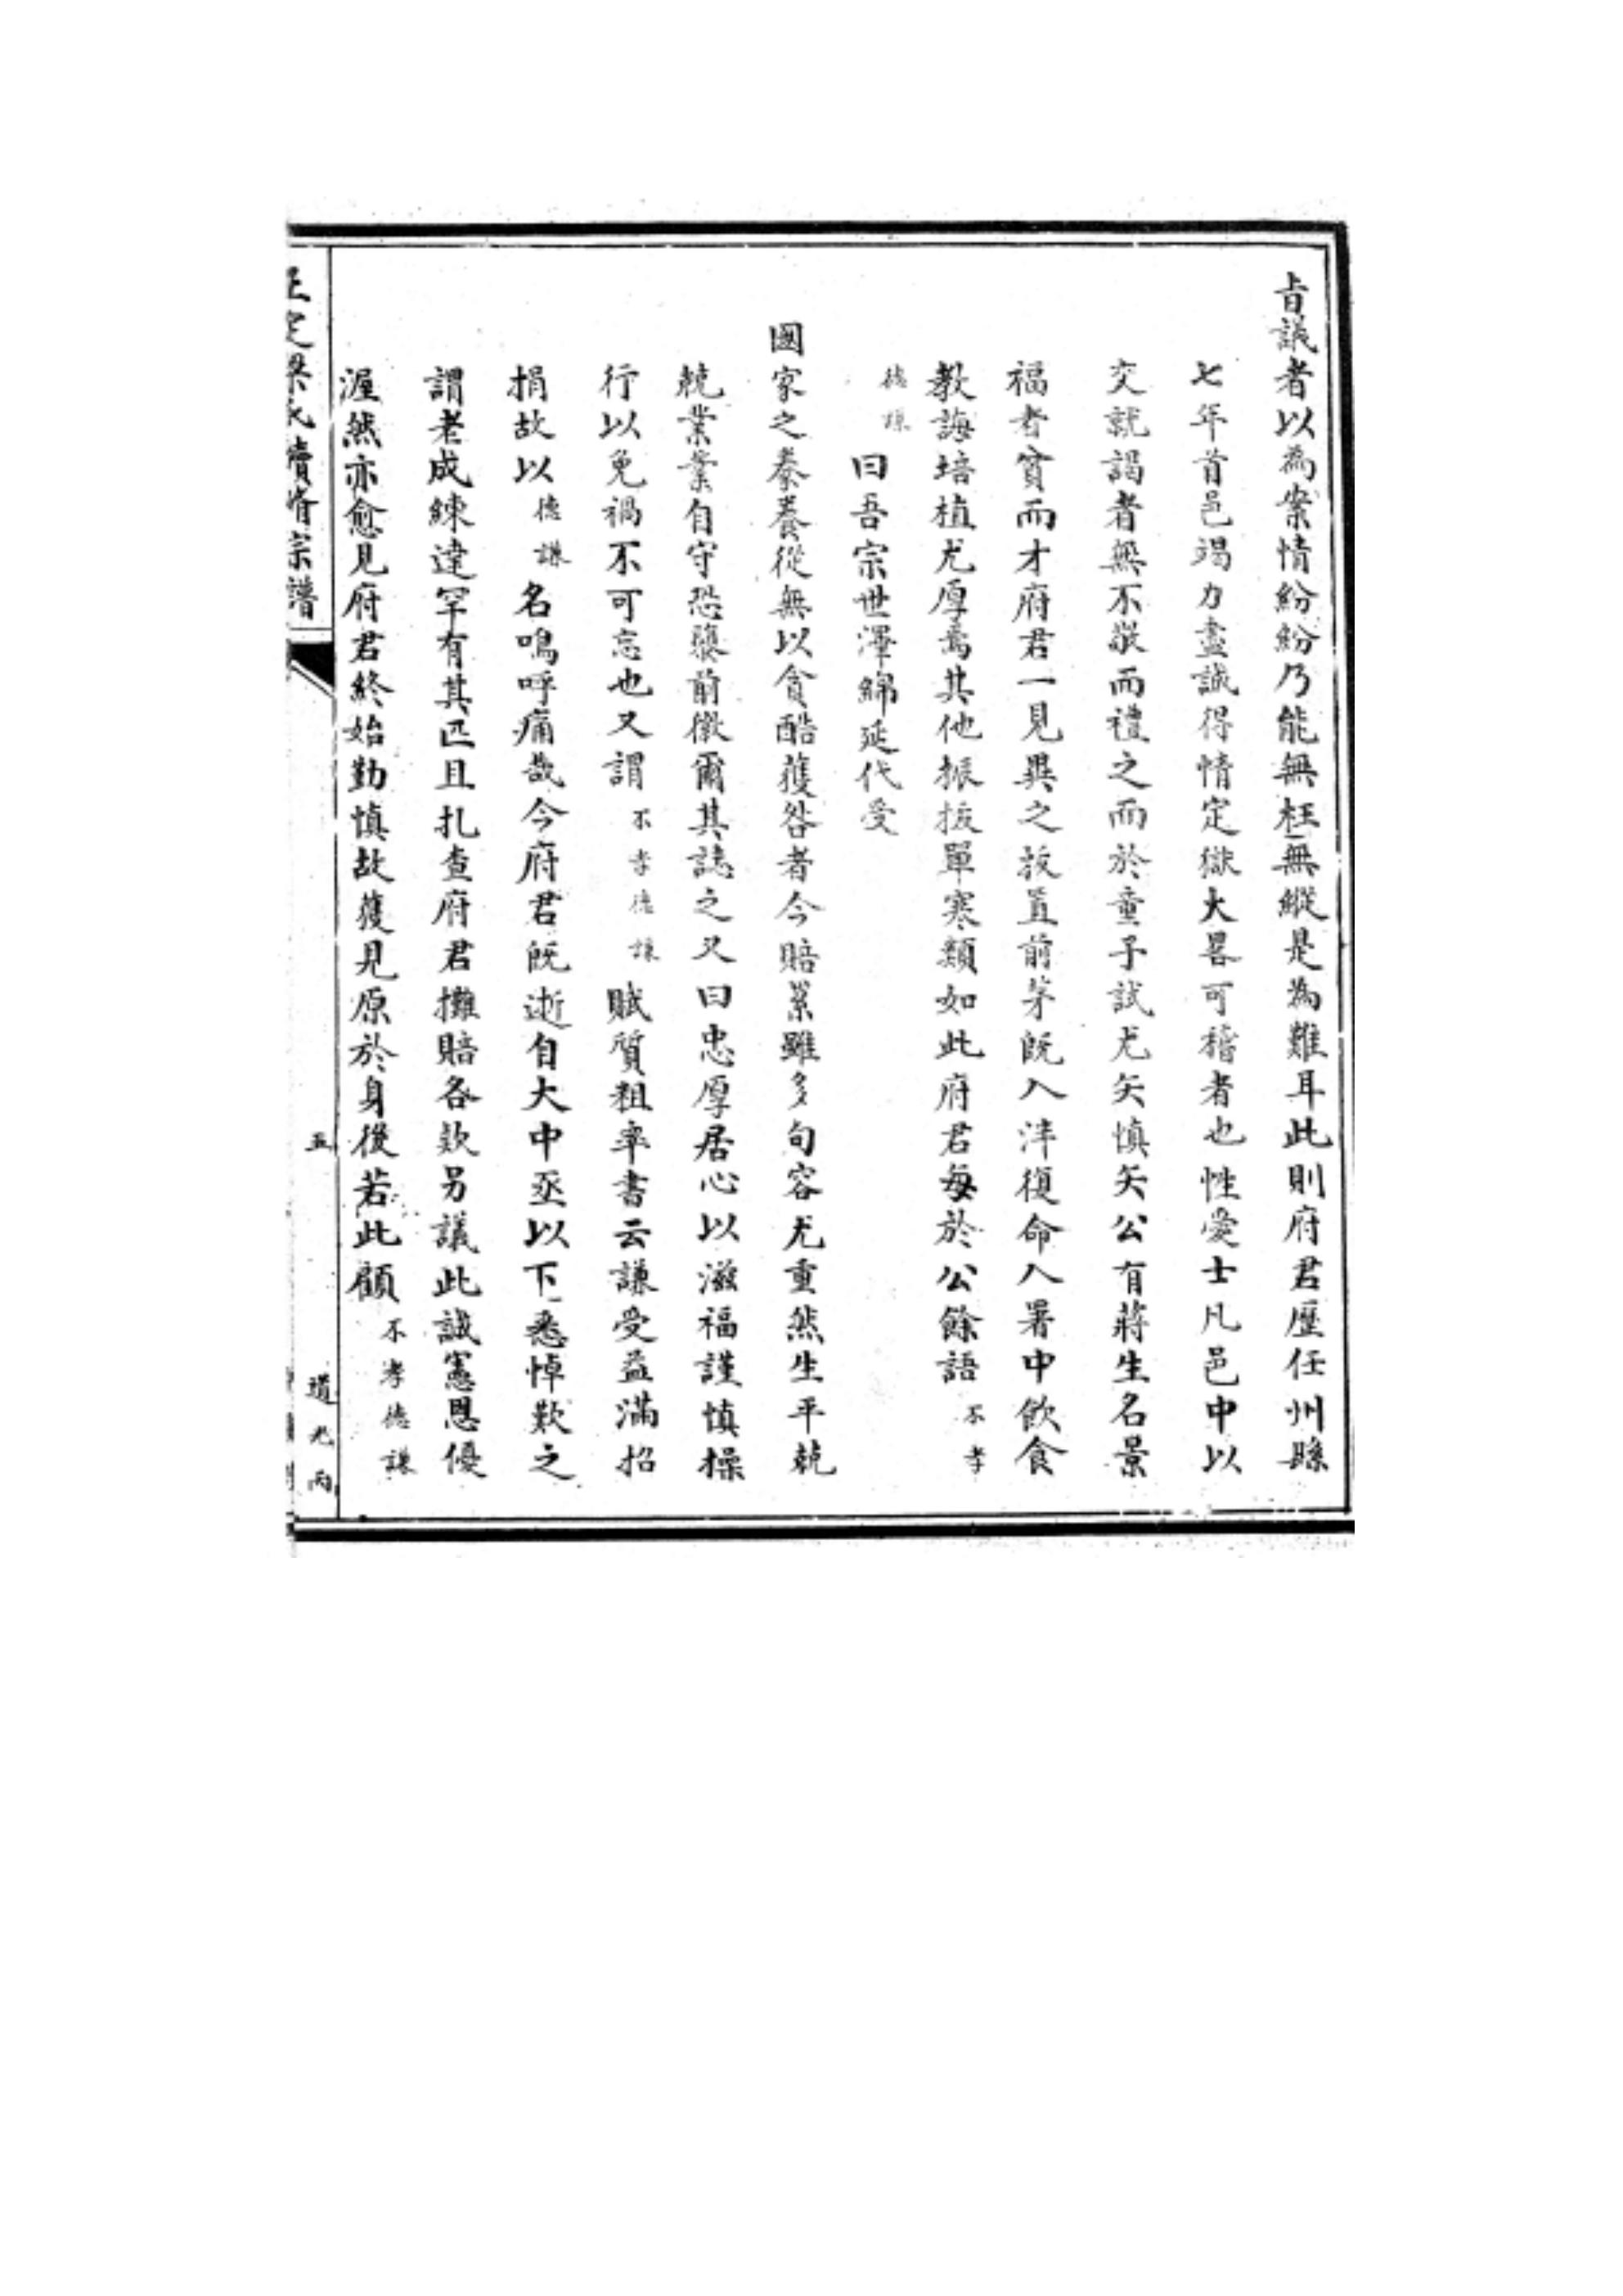 旨議者以為案情紛紛乃能無枉無縱是為難耳此則府君歷任州縣
七年首邑竭力盡誠得情定獄大畧可稽者也性愛士凡邑中以
文就謁者無不敬而禮之而於童子試尤矢慎矢公有蔣生名景
福者貧而才府君一見異之拔置前茅既入泮復命入署中飲食
教誨培植尤厚焉其他振拔單寒類如此府君每於公餘語不孝
德謙曰吾宗世澤綿延代受
國家之豢養從無以貪酷獲咎者今賠累雖多句容尤重然生平兢
兢業業自守恐隳前徽爾其誌之又曰忠厚居心以滋福謹慎操
行以免禍不可忘也又謂不孝德謙賦質粗率書云謙受益滿招
損故以德謙名嗚呼痛哉今府君既逝自大中丞以下悉悼歎之
謂老成練達罕有其匹且扎查府君攤賠各款另議此誠憲恩優
渥然亦愈見府君終始勤慎故獲見原於身後若此顧不孝德謙
正定梁氏續脩宗譜
五
道光丙